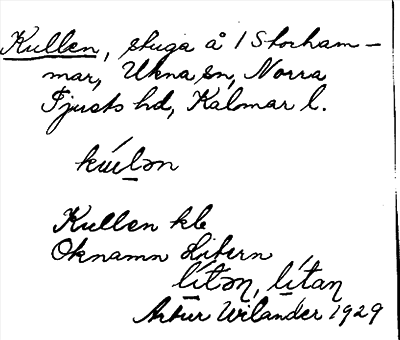 Kullen, stuga å 1 Storham-
mar, Ukna sn, Norra
Tjusts hd, Kalmar l.
kúlən
Kullen kb
Öknamn Litern
lítən, lítaꞃ
Artur Wilander 1929